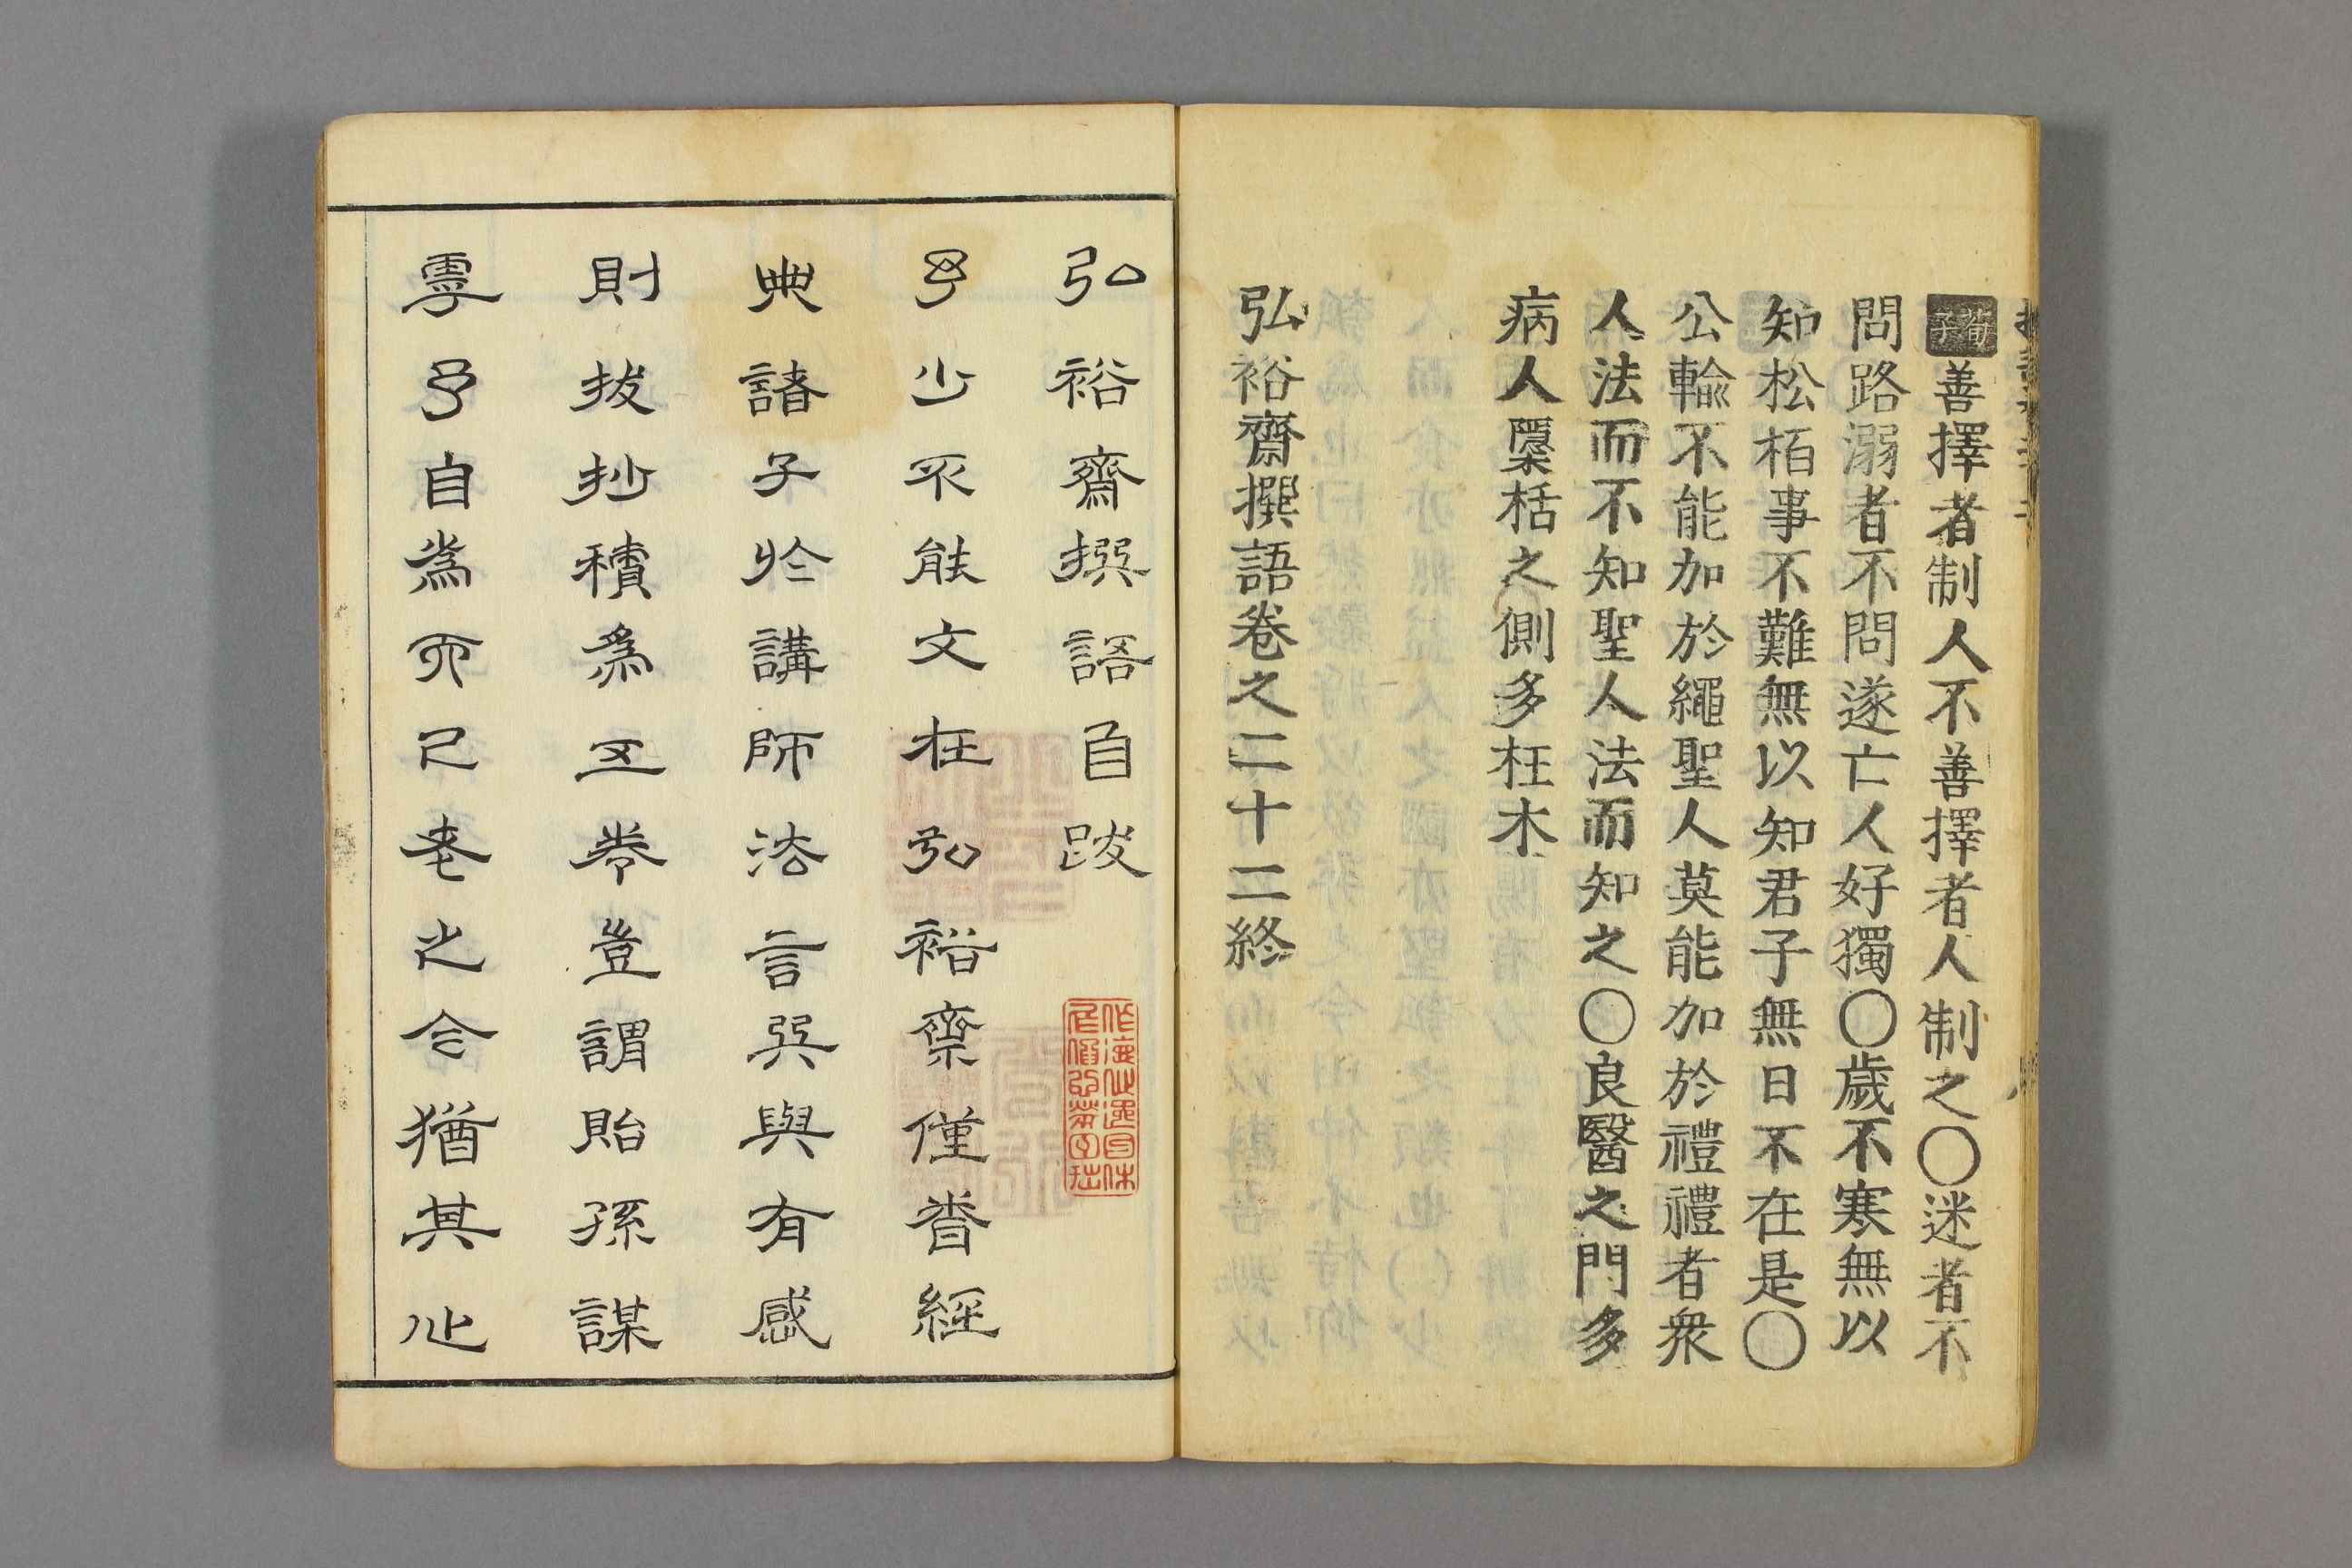 荀子 善擇者制人不善擇者人制之〇迷者不
問路溺者不問遂亡人好獨〇歲不寒無以
知松栢事不難無以知君子無日不在是〇
公輸不能加於繩聖人莫能加於禮禮者衆
人法而不知聖人法而知之〇良醫之門多
病人檃栝之側多枉木
弘裕齋撰語卷之二十二終
弘裕齋撰語自跋
予少不能文在弘裕齋僅沓經
典諸子於講師法言吳與有感
則拔抄積為五卷豈謂貽孫謀
虖予自爲而已老之今猶其心